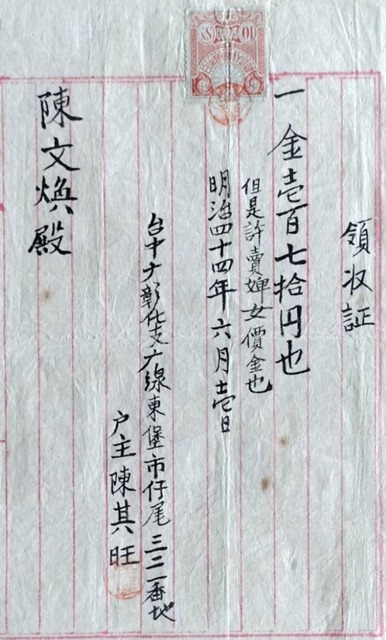 領收証
一金壱百七拾円也
但是許賣婢女價金也
明治四十四年六月壱日
台中廳彰化支廳線東堡市仔尾三二一番地
户主陳其旺
陳文煥殿